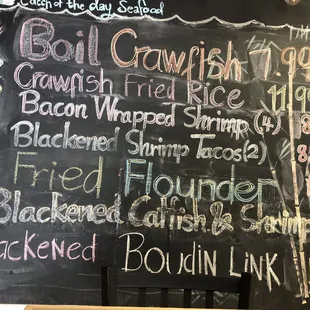 Catch of the day Seafood
Boil Crawfish 1.99
Crawfish Fried Rice 11.99
Bacon Wrapped Shrimp (4) 8
Blackened Shrimp Tacos (2) 8
Fried Flounder
Blackened Catfish & Shrimp
Blackened Boudin Link